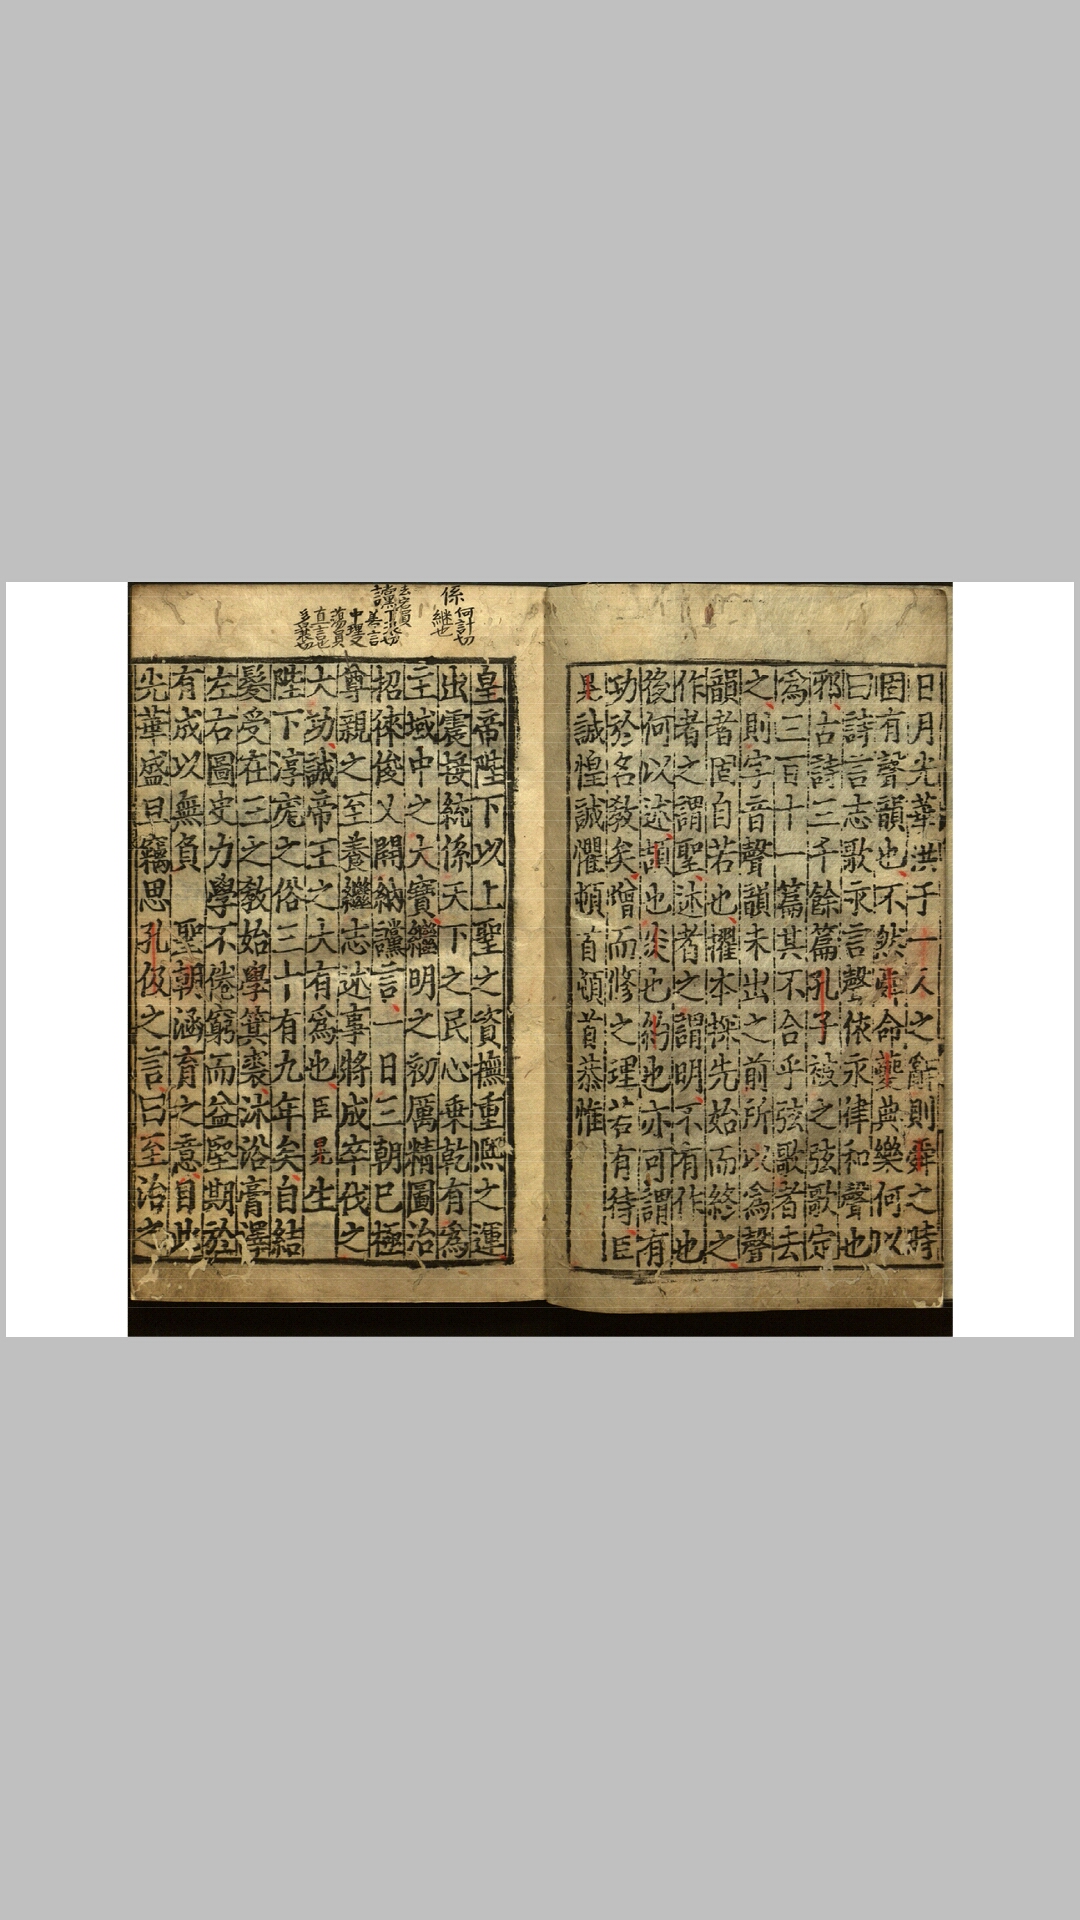 日月光華洪于一人之辭則舜之時
固有聲韻也不然舜命夔典樂何以
曰詩言志歌永言聲依永律和聲也
邪古詩三千餘篇孔子被之弦歌定
爲三百十一篇其不合乎弦歌者去
之則字音聲韻未出之前所以爲聲
韻者固自若也擢本探先始而終之
作者之謂聖述者之謂明不有作也
後何以述頡也炎也約也亦可謂有
功於名教矣增而修之理若有待臣
晃誠惶誠懼頓首頓首恭惟
皇帝陛下以上聖之資撫重熈之運
出震接統係天下之民心乗乾有爲
王域中之大寳繼明之初厲精圖治
招徠俊乂開納讜言一日三朝已極
尊親之至養繼志述事將成卒伐之
大功誠帝王之大有爲也臣晃生
陛下淳厖之俗三十有九年矣自結
髮受在三之教始學箕裘沐浴膏澤
左右圖史力學不倦窮而益堅期於
有成以無負 聖朝涵育之意目此
光華盛旦竊思孔伋之言曰至治之
係
何計切
継也
讜
丁浪切
善言
中理又
蕩員
直言也
多葬切